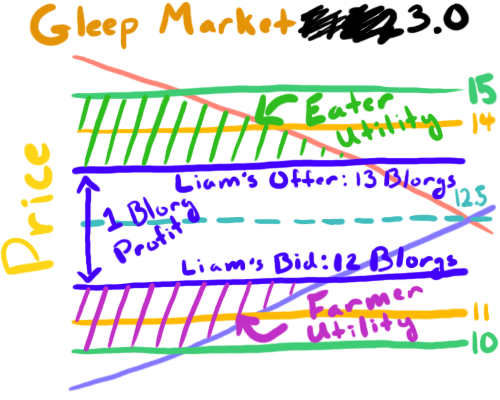 Gleep Market 3.0
15
Eater
Utility
14
Liam's Offer: 13 Blorgs
12.5
1 Blorg
Profit
Price
Liam's Bid: 12 Blorgs
Farmer
Utility
11
10